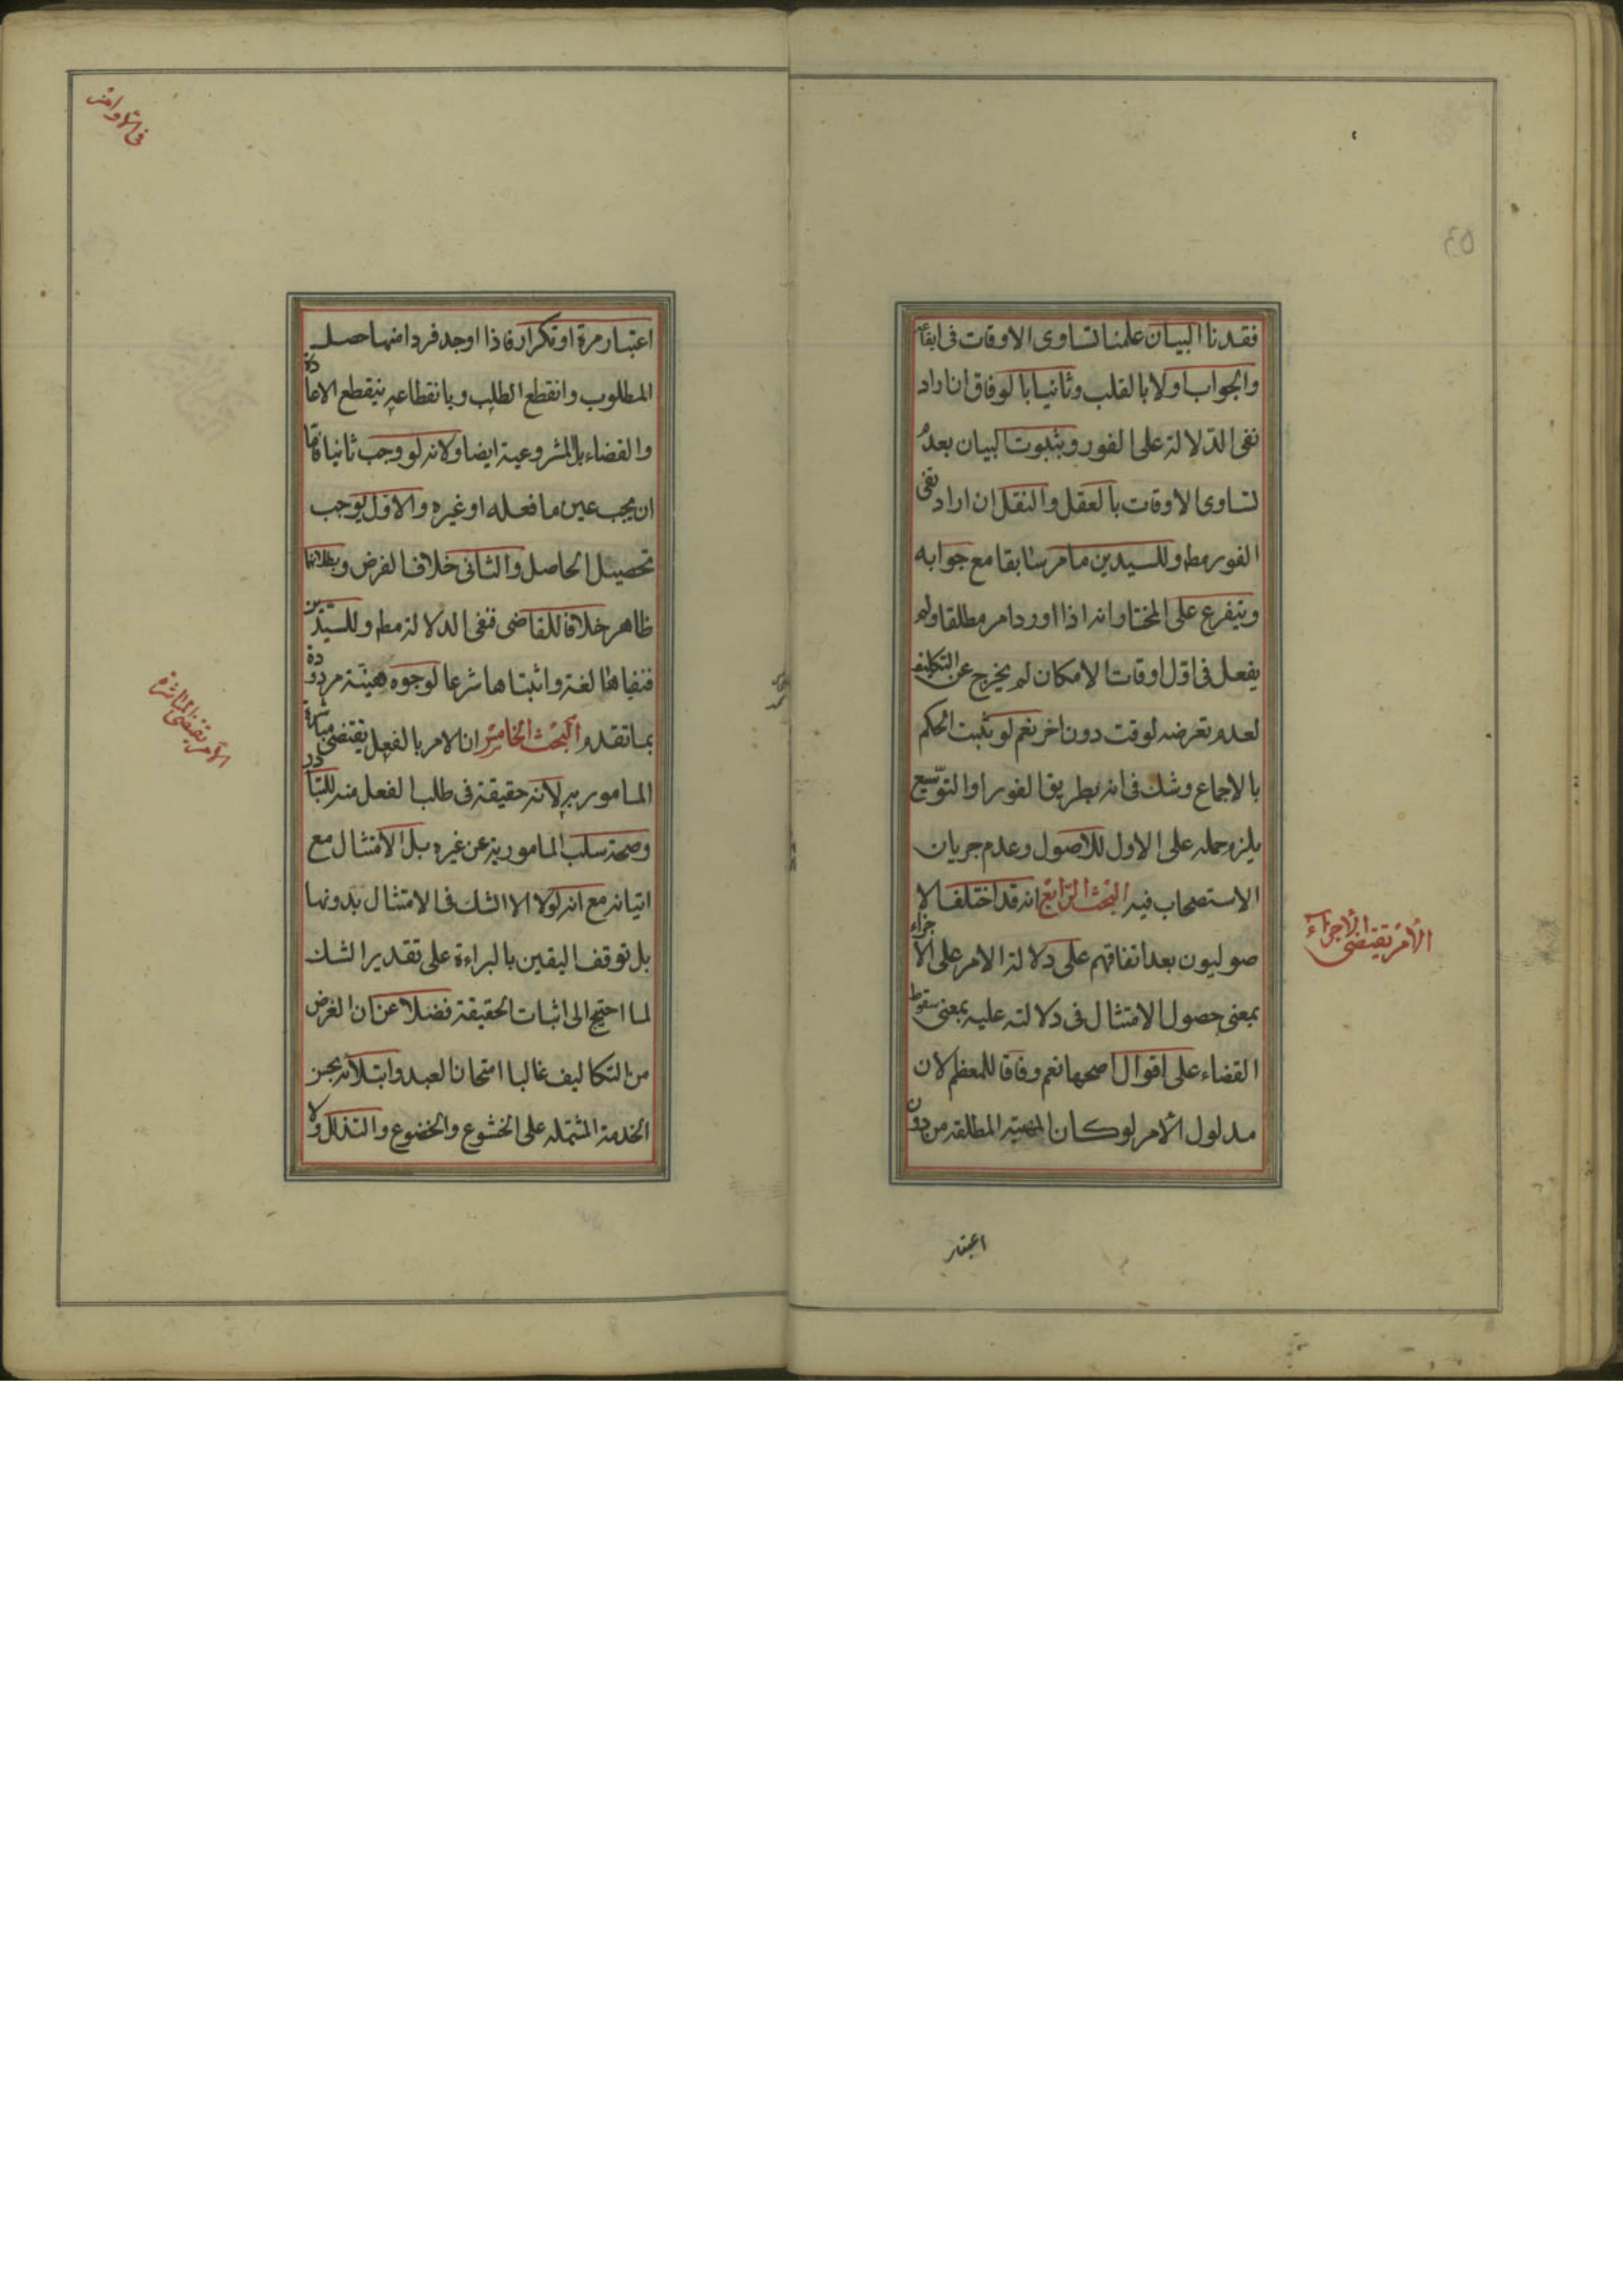 فقدنا البيان علمنا تساوى الاوقات فى ايقاعه
والجواب اولا بالقلب وثانيا بالوفاق ان اراد
نفى الدلالة على الفور وبثبوت البيان بعدم
تساوى الاوقات بالعقل والنقل ان اراد نفى
الفور مط وللسيدين ما مر سابقا مع جوابه
ويتفرع على المختار انه اذا اورد امر مطلقا ولم
يفعل فى اول اوقات الامكان لم يخرج عن التكليف
لعدم تعرضه لوقت دون اخر نعم لو ثبت الحكم
بالاجماع وشك فى انه بطريق الفور او التوسيع
يلزم حمله على الاول للاصول وعدم جريان
الاستصحاب فيه البحث الرابع انه قد اختلف الا
صوليون بعد اتفاقهم على دلالة الامر على الاجزاء
بمعنى حصول الامتثال فى دلالته عليه بمعنى سقوط
القضاء على اقوال اصحها نعم وفاقا للمعظم لان
مدلول الامر لو كان المهية المطلقه من دون
الأمر يقتضى الاجزاء
اعتبار
٤٥
فى الأوامر
اعتبار مرة او تكرار فاذا اوجد فردا منها حصل
المطلوب وانقطع الطلب وبانقطاعه ينقطع الاعادة
والقضاء بل المشروعية ايضا ولانه لو وجب ثانيا فاما
ان يجب عين ما فعله او غيره والاول يوجب
تحصيل الحاصل والثانى خلاف الفرض وبطلانهما
ظاهر خلافا للقاضى فنفى الدلالة مط وللسيدين
فنفياها لغة واثبتاها شرعا لوجوه هينة مردودة
بما تقدم البحث الخامس ان الامر بالفعل يقتضى مباشرة
المامور به لانه حقيقة فى طلب الفعل منه للتبادر
وصحة سلب المامورية عن غيره بل الامتثال مع
اتيانه مع انه لولا الا الشك فى الامتثال بدونها
بل توقف اليقين بالبراءة على تقدير الشك
لما احتيج الى اثبات الحقيقة فضلا عن ان الغرض
من التكاليف غالبا امتحان العبد وابتلائه بحسن
الخدمة المشتمله على الخشوع والخضوع والتذلل ولا
الأمر يقتضى المباشرة